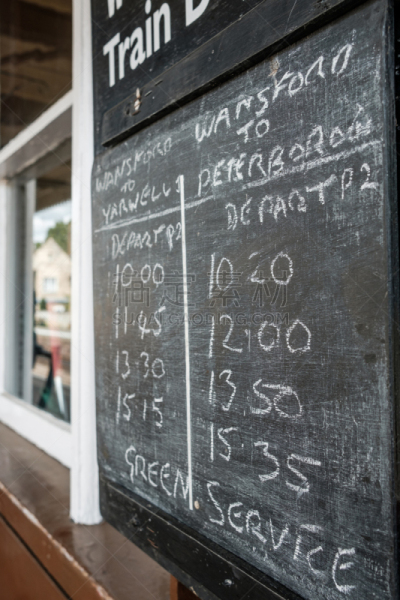 Train D
WANSFORD
TO
YARWELL
DEPART P2
10:00
11:45
13:30
15:15
WANSFORD
TO
PETERBOROW
DEPART P2
10:20
12:00
13:50
15:35
GREEN SERVICE